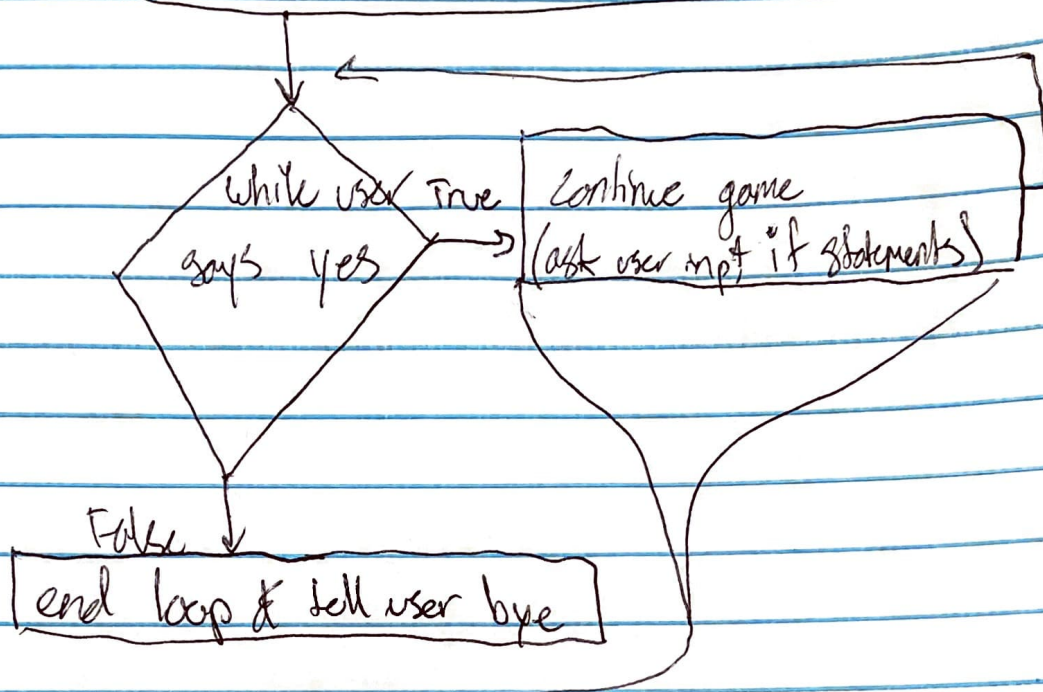 while user
says yes
True
continue game
(ask user inpt if statements)
False
end loop & tell user bye